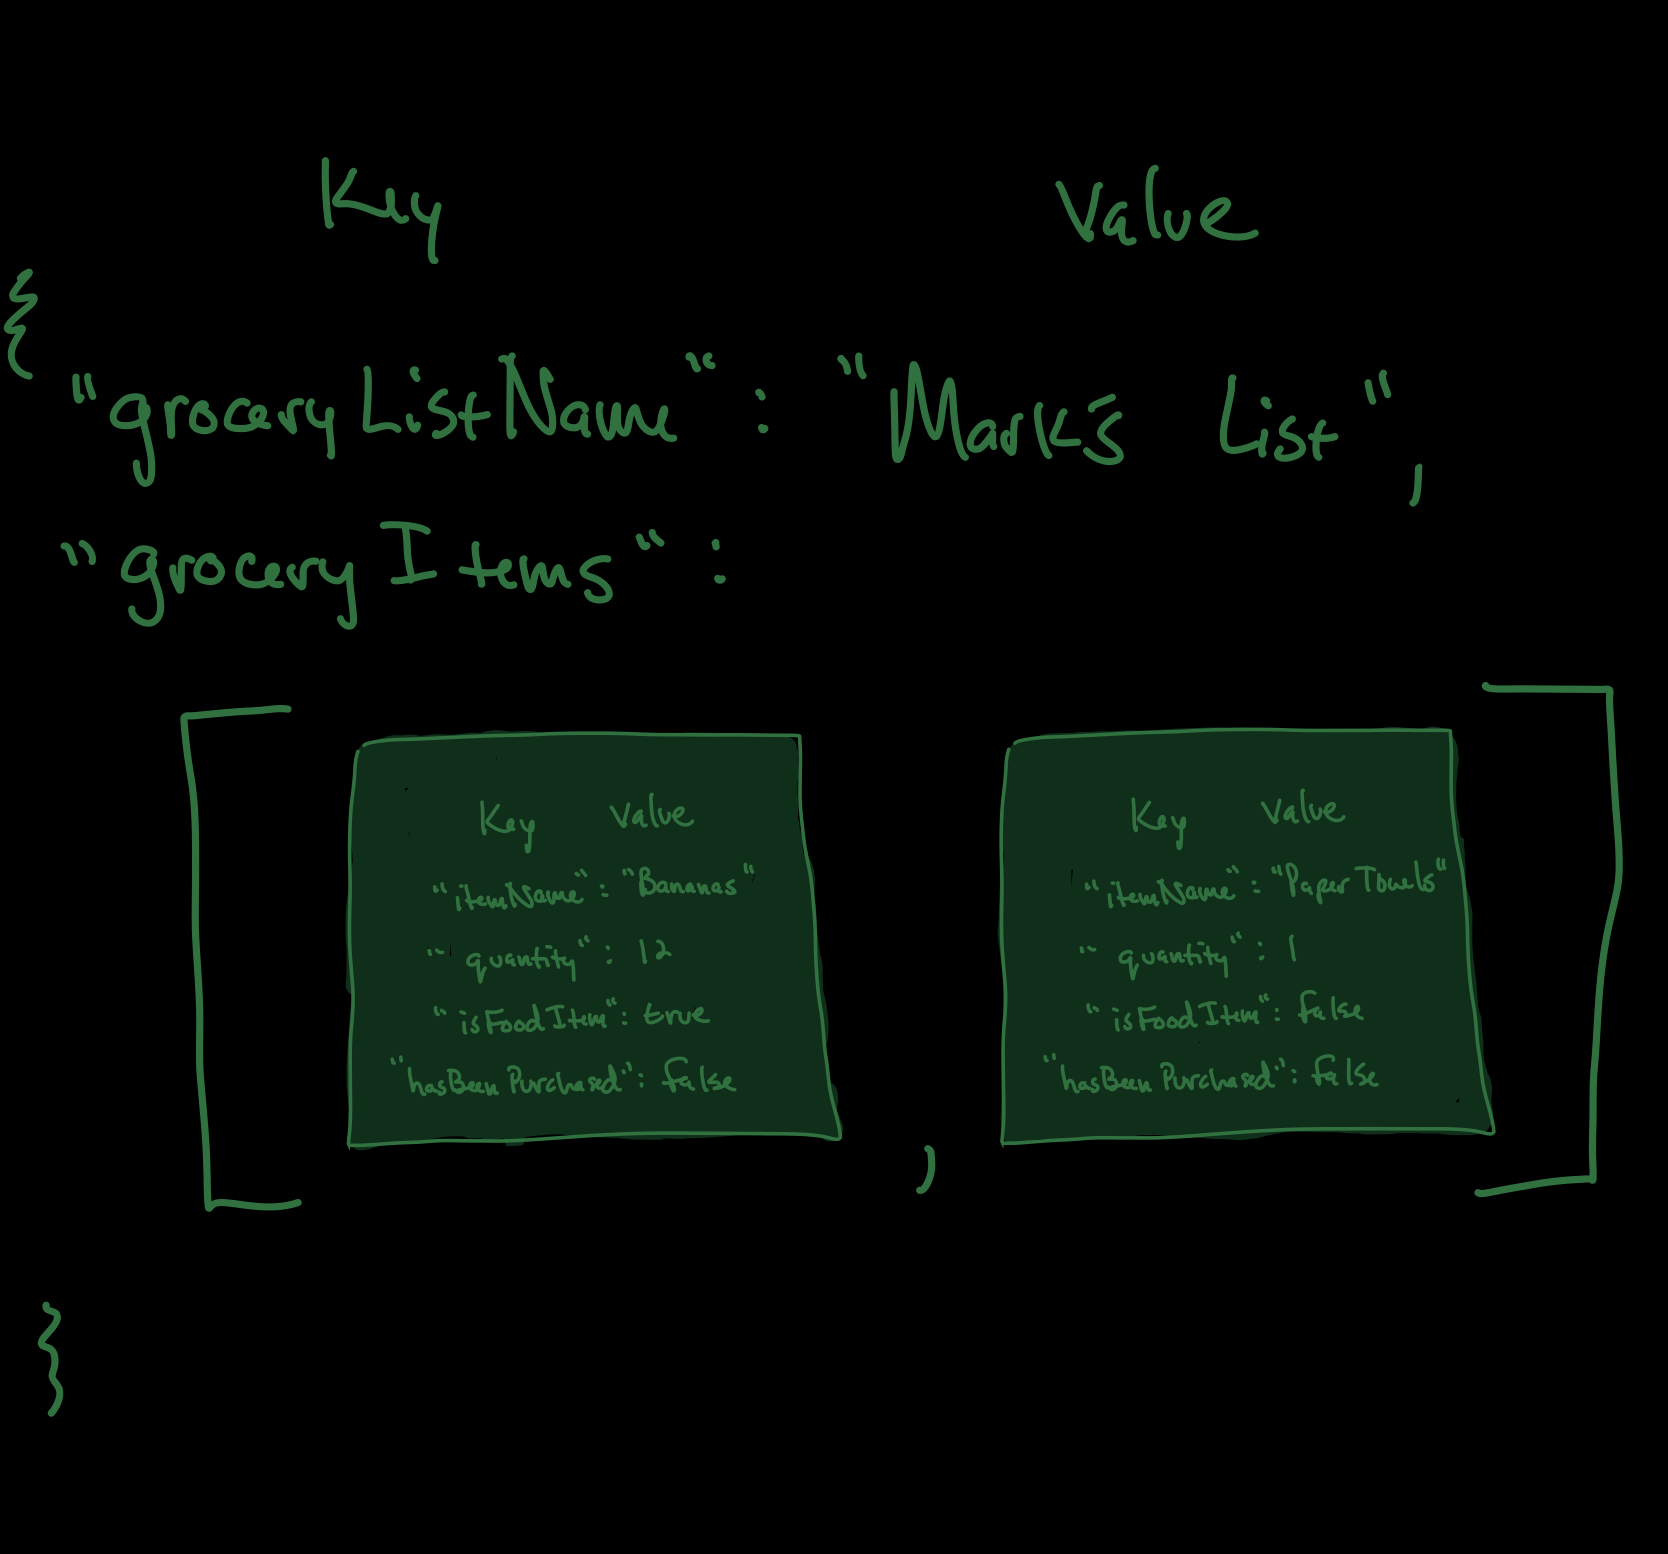 Key Value
{
"groceryListName" : "Mark's List",
"groceryItems" :
[
Key Value
"itemName" : "Bananas"
"quantity" : 12
"isFoodItem" : true
"hasBeenPurchased" : false
,
Key Value
"itemName" : "Paper Towels"
"quantity" : 1
"isFoodItem" : false
"hasBeenPurchased" : false
]
}